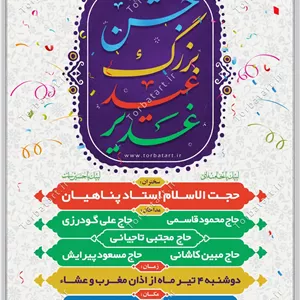 جشن
بزرگ
عید
غدیر
www.torbatart.ir
سخنران:
حجت الاسلام استاد پناهیان
مداحان:
حاج محمود قاسمی
حاج علی گودرزی
حاج مجتبی تاجیانی
حاج مبین کاشانی
حاج مسعود پیرایش
زمان:
دوشنبه ۴ تیر ماه از اذان مغرب و عشاء
مکان: